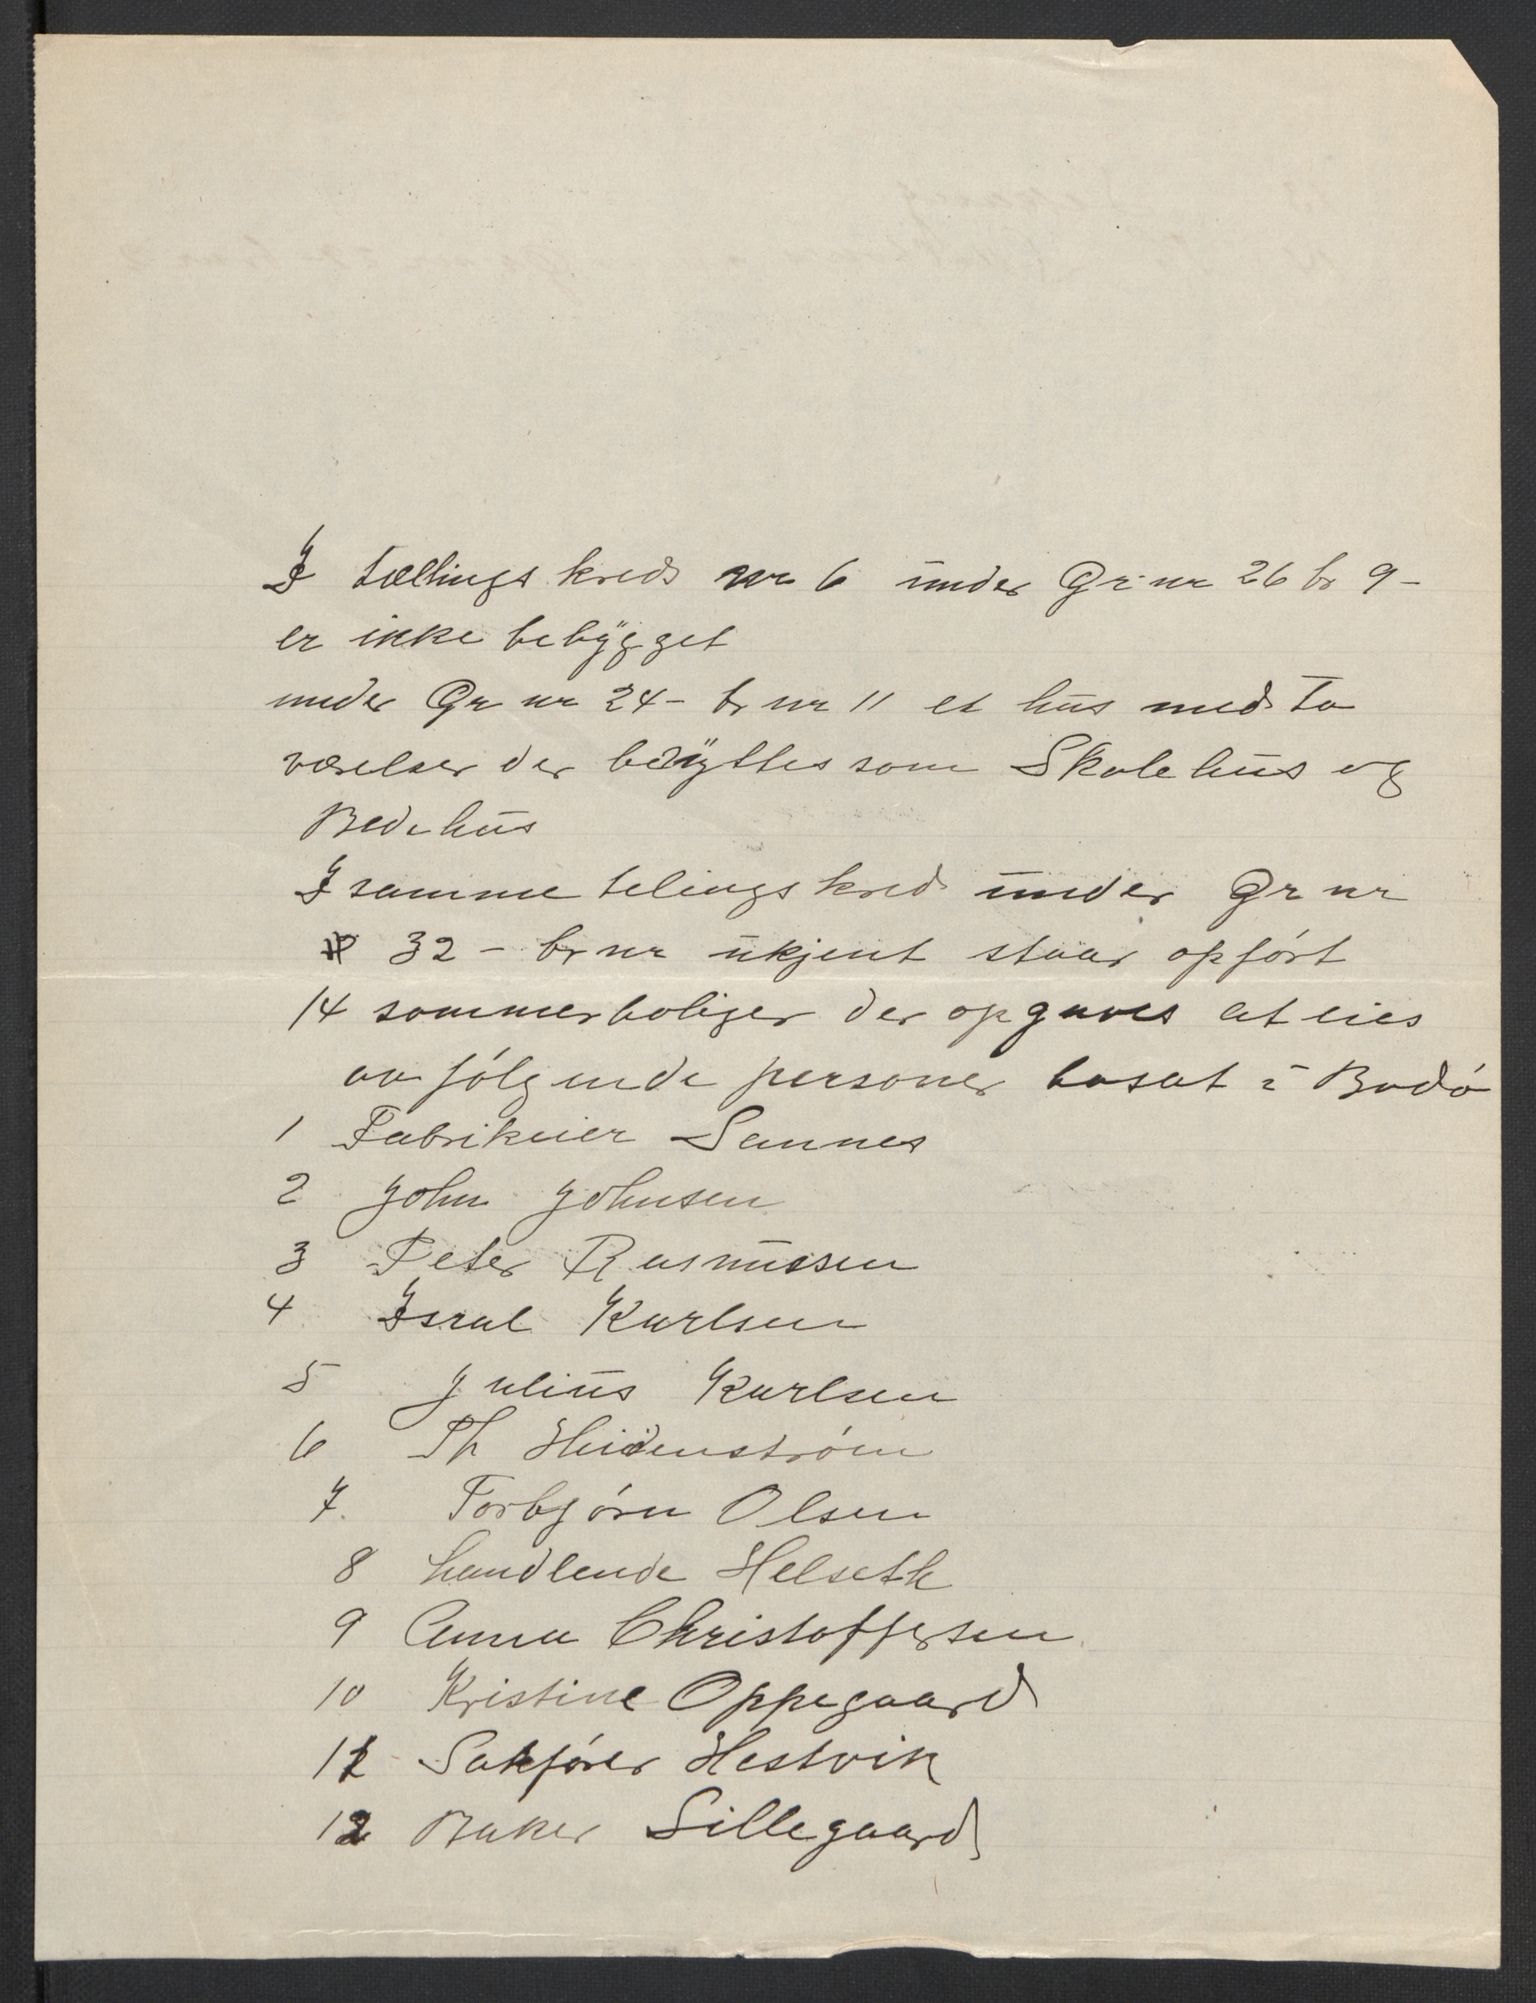 I tællings kreds nr 6 under Gr nr 26 br 9 -
er ikke bebygget
under Gr nr 24 - br nr 11 et hus med to
værelser der benyttes som Skolehus og
Bedehus
I samme telings kreds under Gr nr
32 - br nr ukjent staar opført
14 sommerboliger der opgaves at eies
av følgende personer bosat i Bodø
1 Fabrikeier Sannes
2 John Johnsen
3 Peter Rasmussen
4 Israel Karlsen
5 Julius Karlsen
6 Th Hidenstrøm
7. Torbjørn Olsen
8 handlende Helseth
9 Anna Christoffersen
10 Kristine Oppegaard
11 Sakfører Hestvik
12 Baker Sillegaard